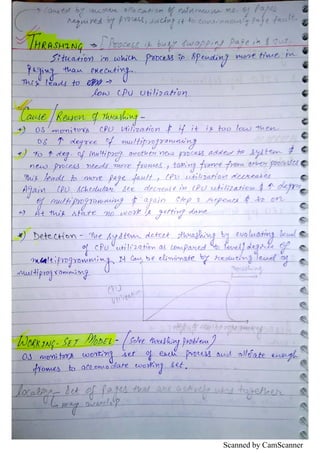 → caused by under allocation of minimum no. of pages
required by process, forcing it to continuously page fault.
THRASHING → [Process is busy swapping page in & out.
Situation in which process is spending more time in
paging than executing.
This leads to →
low CPU utilization
Cause / Reason of Thrashing -
→) OS monitors CPU utilization & if it is too low then
OS ↑ degree of multiprogramming
→) To ↑ deg. of multiprog another new process added to system &
new process needs more frames, taking frame from other processes
This leads to more page fault, CPU utilization decreases
Again CPU scheduler see decrease in CPU utilization & ↑ degree
of multiprogramming & again step 2 repeats & so on
→ At this state no work is getting done
*) Detection - The system detect thrashing by evaluating level
of CPU utilization as compared to level/degree of
multiprogramming. It can be eliminate by reducing level of
multiprogramming
thrashing
CPU
utilization
degree of multiprogramming
WORKING-SET MODEL - (Solve thrashing problem)
OS monitors working set of each process and allocate enough
frames to accomodate working set.
Locality - Set of pages that are actively used together
may overlap
Scanned by CamScanner